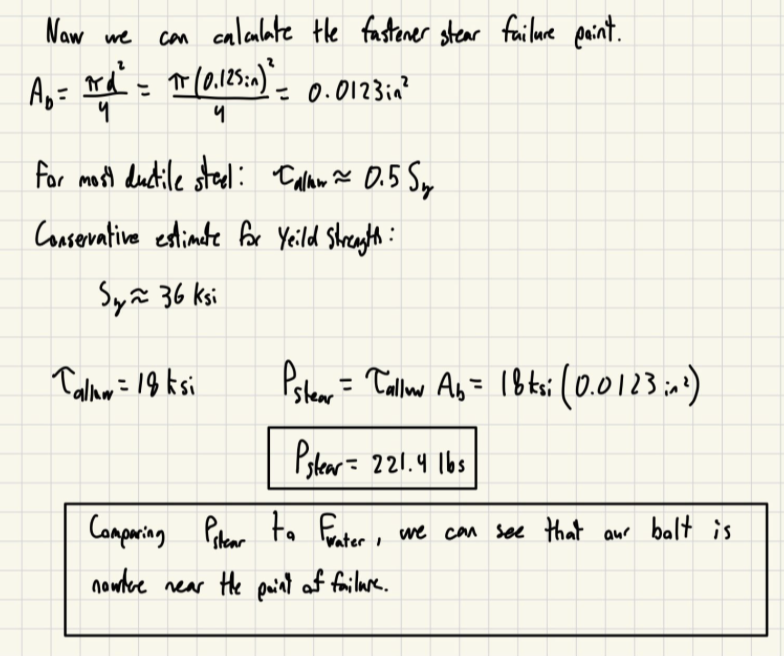 Now we can calculate the fastener shear failure point.
A_b = πd²/4 = π(0.125in)²/4 = 0.0123in²
For most ductile steel: τ_allow ≈ 0.5 S_y
Conservative estimate for Yeild Strength:
S_y ≈ 36 ksi
τ_allow = 18 ksi P_shear = τ_allow A_b = 18ksi (0.0123 in²)
P_shear = 221.4 lbs
Comparing P_shear to F_water, we can see that our bolt is
nowhere near the point of failure.